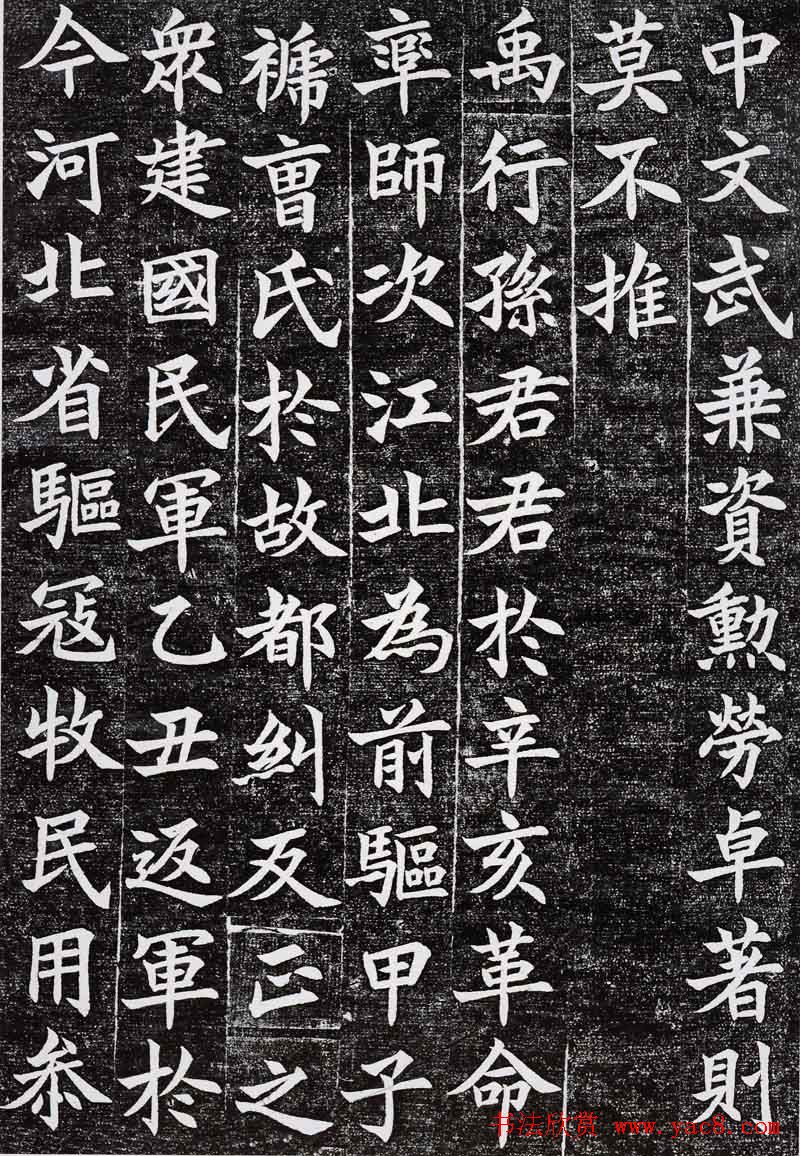 中文武兼資勲勞卓著則
莫不推
禹行孫君君於辛亥革命
率師次江北為前驅甲子
褫曺氏於故都糾反正之
眾建國民軍乙丑返軍於
今河北省驅冦牧民用叅
书法欣赏 www.yac8.com